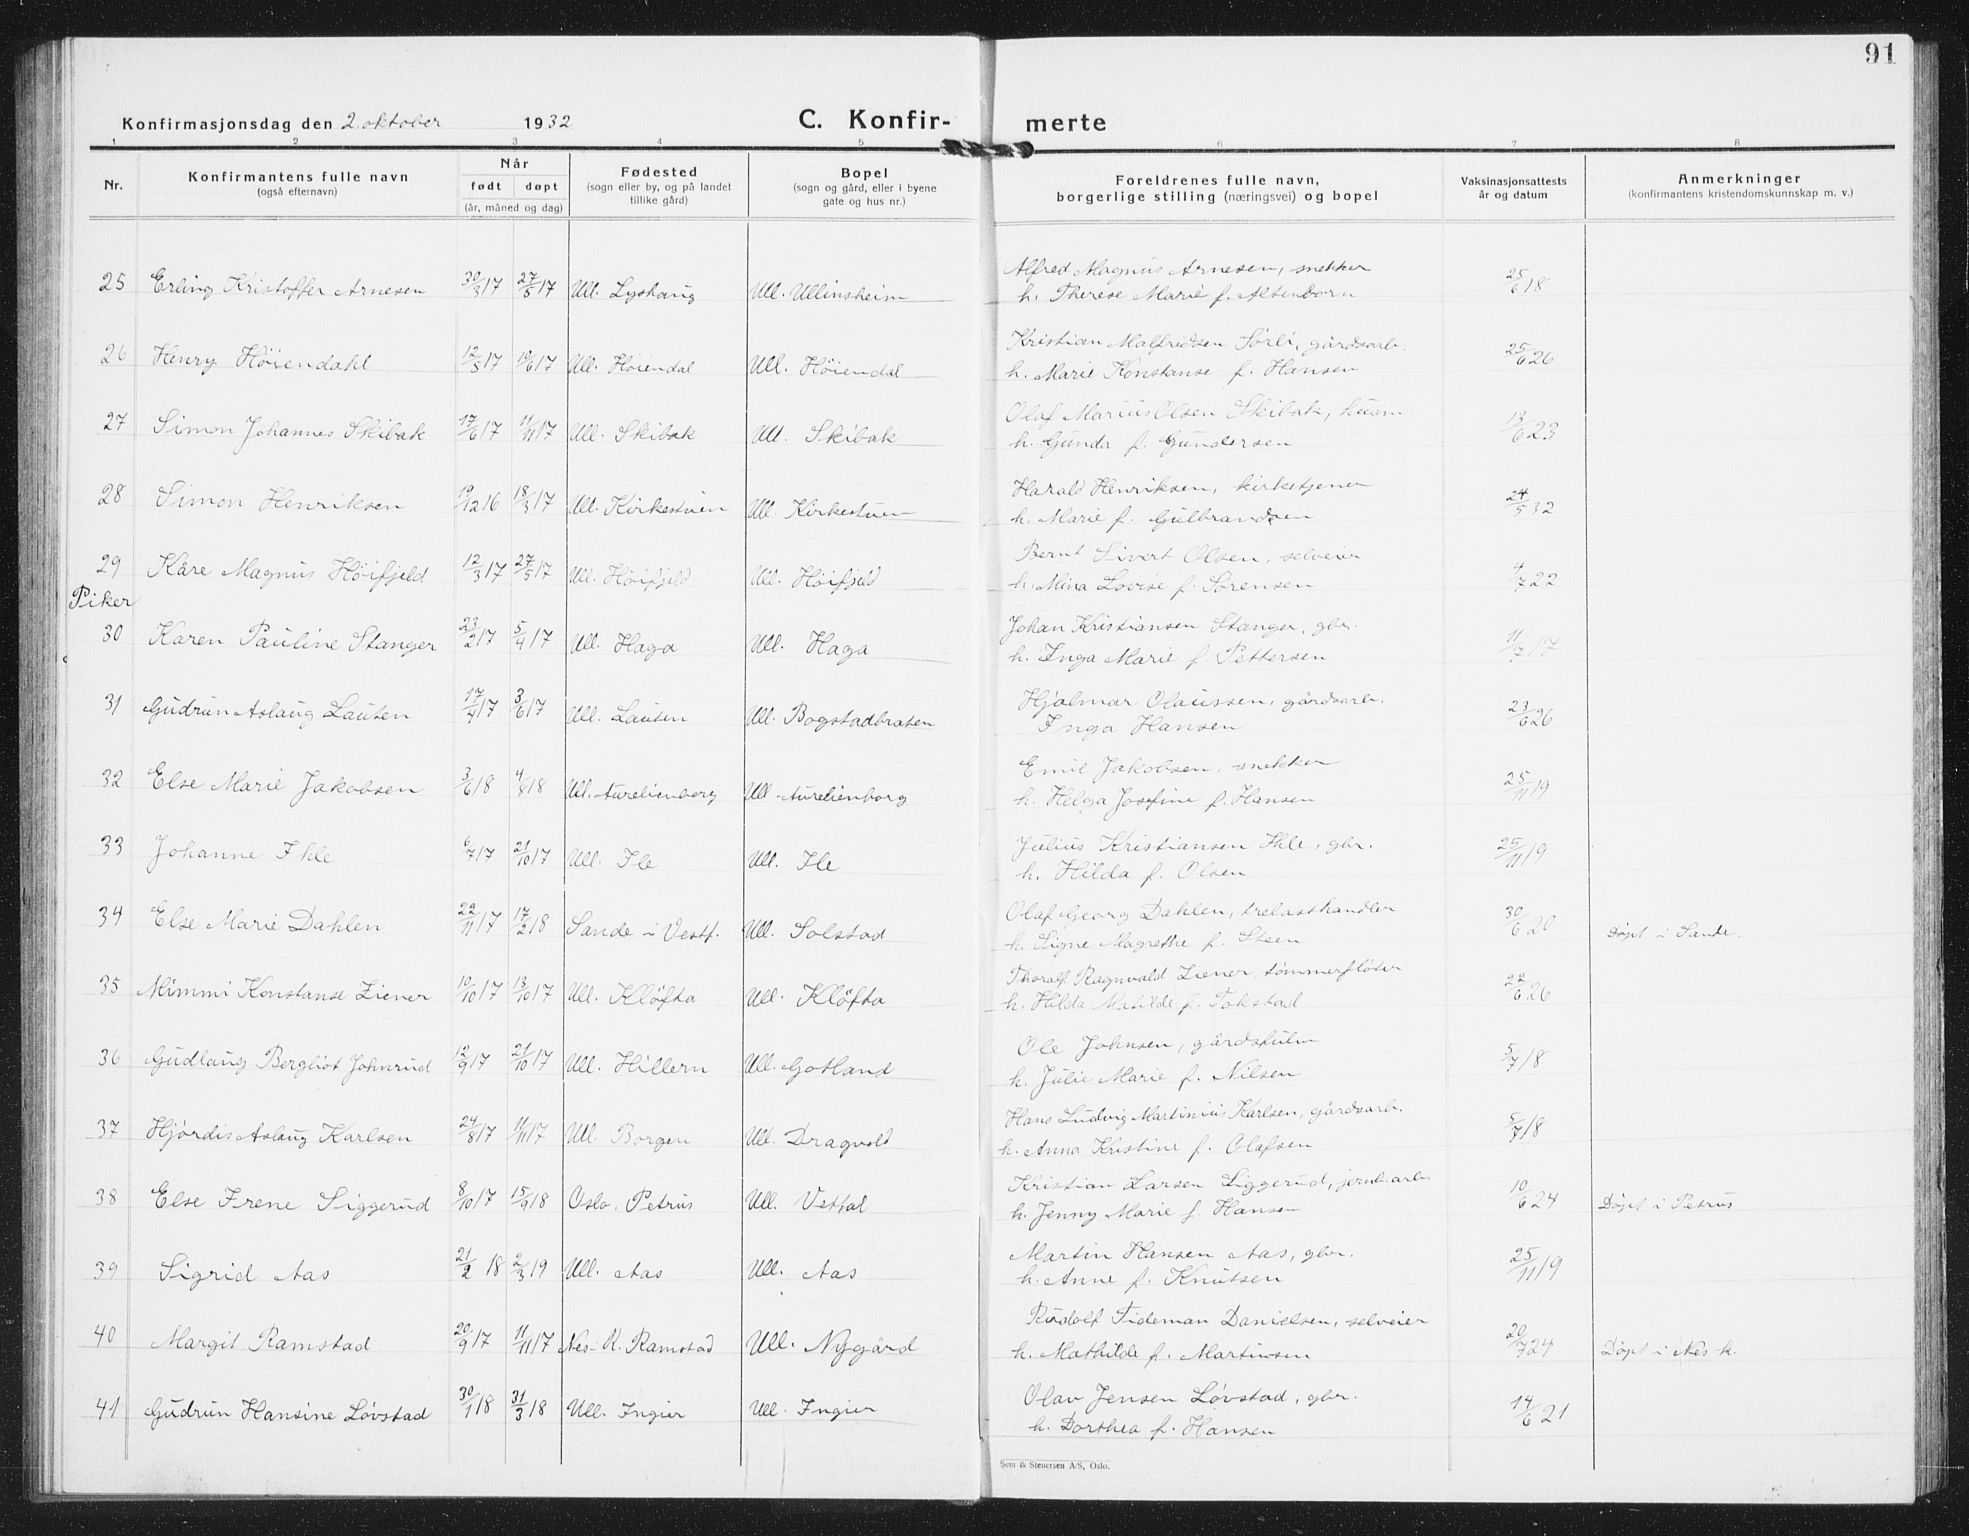 91
Konfirmasjonsdag den 2. oktober 1932 C. Konfir- merte
1 2 3 4 5 6 7 8
Nr. Konfirmantens fulle navn (også efternavn) Når født døpt (år, måned og dag) Fødested (sogn eller by, og på landet tillike gård) Bopel (sogn og gård, eller i byene gate og hus nr.) Foreldrenes fulle navn, borgerlige stilling (næringsvei) og bopel Vaksinasjonsattests år og datum Anmerkninger (konfirmantens kristendomskunnskap m. v.)
25 Erling Kristoffer Arnesen 30/3 17 27/5 17 Ull. Lyshaug Ull. Ullinsheim Alfred Magnus Arnesen, snekker 25/6 18
h. Therese Marie f. Altenborn
26 Henry Höiendahl 12/5 17 10/6 17 Ull. Höiendal Ull. Höiendal Kristian Malfredsen Sørli, gårdsarb. 25/6 26
h. Marie Konstanse f. Hansen
27 Simon Johannes Skibak 17/6 17 11/11 17 Ull. Skibak Ull. Skibak Olaf Marius Olsen Skibak, husm. 13/6 23
h. Gunda f. Gundersen
28 Simon Henriksen 19/12 16 18/3 17 Ull. Kirkestuen Ull. Kirkestuen Harald Henriksen, kirketjener 24/5 32
h. Marie f. Gulbrandsen
29 Kåre Magnus Höifjeld 12/3 17 27/5 17 Ull. Höifjeld Ull. Höifjeld Bernt Sivert Olsen, selveier 4/7 22
h. Mina Lovise f. Sørensen
Piker
30 Karen Pauline Stanger 23/2 17 5/4 17 Ull. Haga Ull. Haga Johan Kristiansen Stanger, gbr. 11/7 17
h. Inga Marie f. Pettersen
31 Gudrun Aslaug Lauten 17/4 17 3/6 17 Ull. Lauten Ull. Bogstadbraten Hjalmar Olaussen, gårdsarb. 23/6 26
Inga Hansen
32 Else Marie Jakobsen 3/6 18 4/8 18 Ull. Aurelienberg Ull. Aurelienborg Emil Jakobsen, snekker 25/11 19
h. Helga Josefine f. Hansen
33 Johanne Ihle 6/7 17 21/10 17 Ull. Ile Ull. Ile Julius Kristiansen Ihle, gbr. 25/11 19
h. Hilda f. Olsen
34 Else Marie Dahlen 22/11 17 17/2 18 Sande i Vestf. Ull. Solstad Olaf Georg Dahlen, trelasthandler 30/6 20 Döpt i Sande.
h. Signe Magrethe f. Steen
35 Mimmi Konstanse Liener 10/10 17 13/10 17 Ull. Klöfta Ull. Klöfta Thoralf Ragnvald Liener, tömmerflöter 22/6 26
h. Hilda Matilde f. Tokstad
36 Gudlaug Bergliot Johnrud 12/9 17 21/10 17 Ull. Hillern Ull. Gotland Ole Johnsen, gårdsfulm 5/7 18
h. Julie Marie f. Nilsen
37 Hjördis Aslaug Karlsen 24/8 17 11/11 17 Ull. Borgen Ull. Dragvold Hans Ludvig Martinius Karlsen, gårdsarb. 5/7 18
h. Anna Kristine f. Olafsen
38 Else Irene Siggerud 8/10 17 15/9 18 Oslo, Petrus Ull. Vettal Kristian Larsen Siggerud, jernb.arb. 10/6 24 Döpt i Petrus
h. Jenny Marie f. Hansen
39 Sigrid Aas 21/2 18 2/3 19 Ull. Aas Ull. Aas Martin Hansen Aas, gbr. 25/11 19
h. Anne f. Knutsen
40 Margit Ramstad 20/9 17 11/11 17 Nes-R. Ramstad Ull. Nygård Rudolf Tideman Danielsen, selveier 20/7 24 Döpt i Nes k.
h. Mathilde f. Martinsen
41 Gudrun Hansine Lövstad 30/1 18 31/3 18 Ull. Ingier Ull. Ingier Olav Jensen Lövstad, gbr. 14/6 21
h. Dorthea f. Hansen
Sem & Stenersen A/S, Oslo.